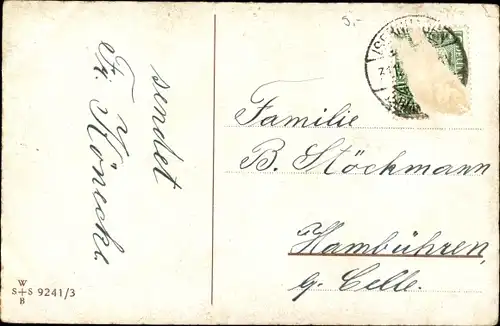 5,-
sendet
Fr. Könecke.
Familie
B. Stöckmann
Hambühren,
g. Celle.
W
S+S 9241/3
B